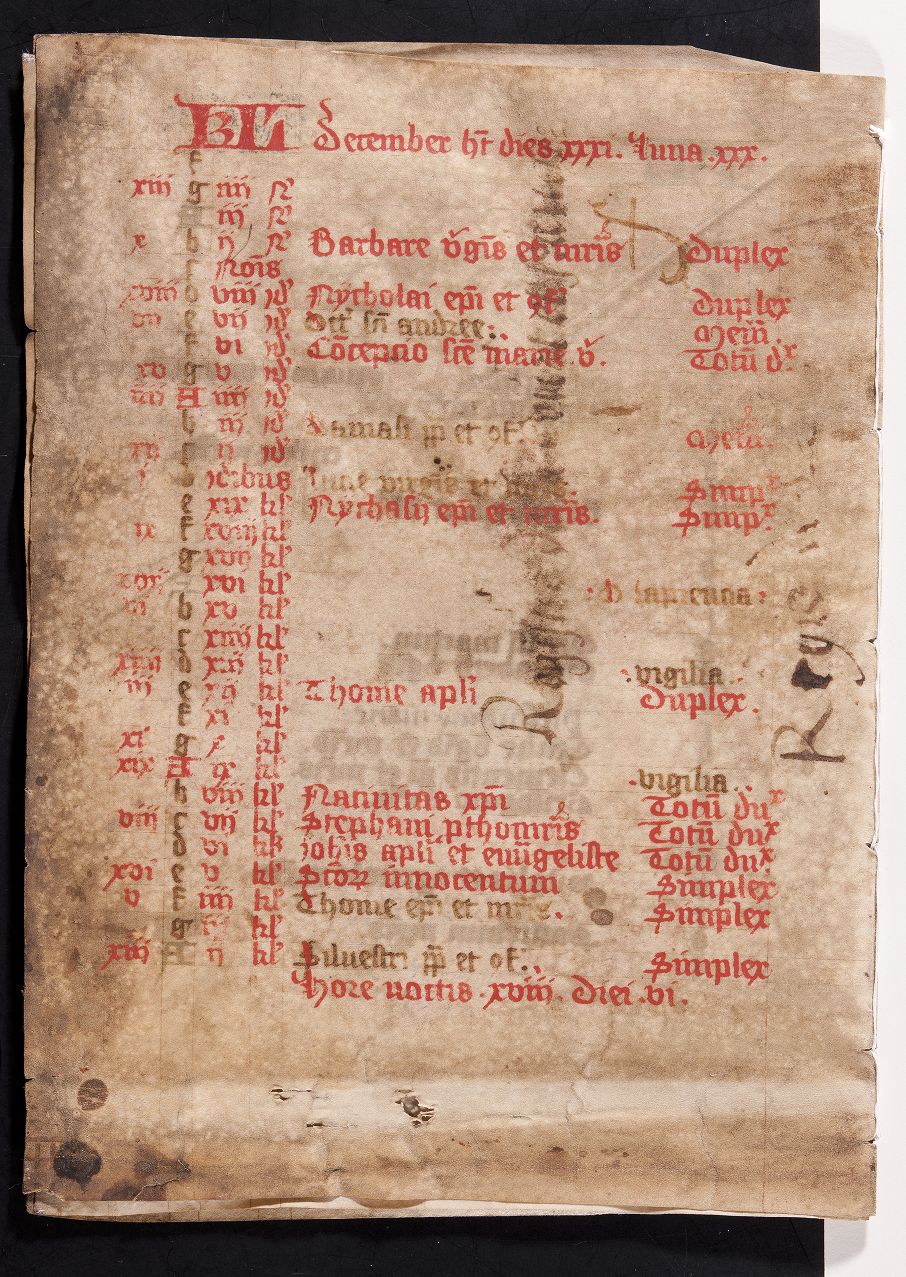 KL December ht dies xxxi. luna .xxx.
f
xiii g iiii N
A iii N
x b ii N Barbare vgis et mris Duplex
c Nois
xviii d viii id Nycholai epi et of Duplex
vii e vii id Oct sci andree. Mem.
f vi id Concepcio sce marie .v. Totu dx
xv g v id
iiii A iiii id
b iii id Damasi pp et of. Mem.
xii c ii id
i d idibus Lucie virgis et mris. Simpx
e xix kl Nychasij epi et mris. Simpx
ix f xviii kl
g xvii kl
xvii A xvi kl O sapiencia
vi b xv kl
c xiiii kl
xiiii d xiii kl .vigilia.
iii e xii kl Thome apli Duplex.
f xi kl
xi g x kl
xix A ix kl .vigilia.
b viii kl Natiuitas xpi Totu dux
viii c vii kl Stephani pthomris Totu dux
d vi kl iohis apli et ewugeliste Totu dux
xvi e v kl Scor innocentum Simplex
v f iiii kl Thome epi et mris. Simplex
g iii kl
xiii A ii kl Siluestri pp et of. Simplex
hore noctis .xviii. diei .vi.